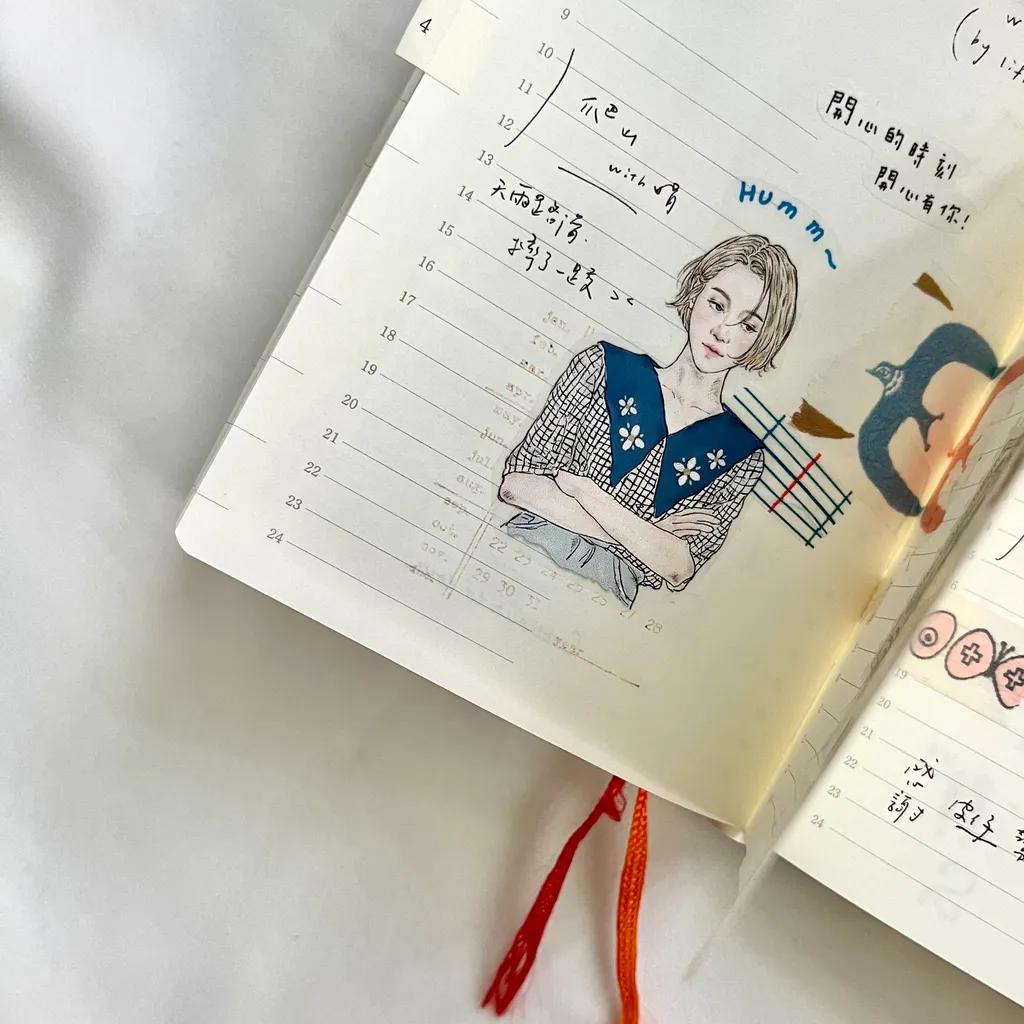 4
9
10
11
12
13
14
15
16
17
18
19
20
21
22
23
24
爬山
with
天雨路滑.
摔了一跤 ><
(by
開心的時刻
開心有你!
HUMM~
jan.
feb.
mar.
apr.
may.
jun.
jul.
aug.
sep.
oct.
nov.
22 23 24 25 26 27 28
29 30 31
year
19
20
21
22
23
24
感
謝